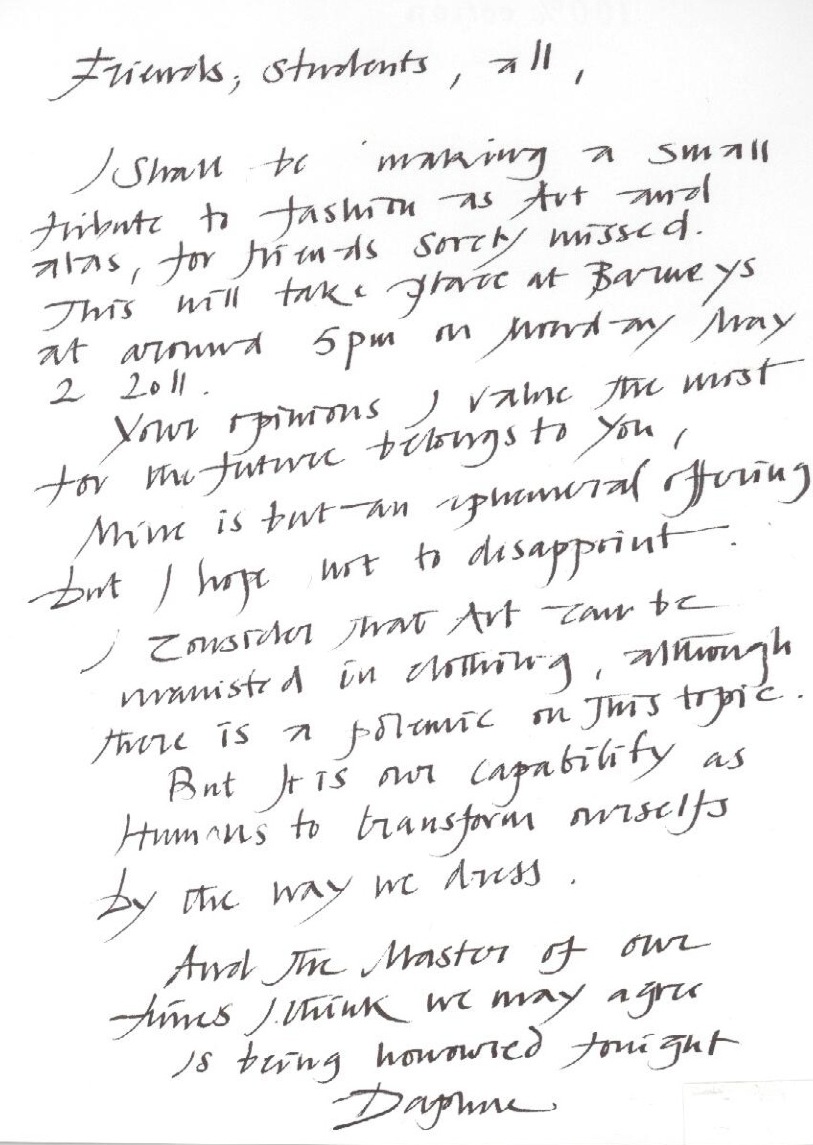 Friends, students, all,
I Shall be making a small
tribute to fashion as Art and
alas, for friends sorely missed.
This will take place at Barneys
at around 5pm on Monday May
2 2011.
Your opinions I value the most
for the future belongs to You,
Mine is but an ephemeral offering
but I hope not to disappoint.
I Consider that Art can be
manisted in clothing, although
there is a polemic on This topic.
But It is our capability as
Humans to transform ourselfs
by the way we dress.
And The Master of our
times I think we may agree
is being honoured tonight
Daphne